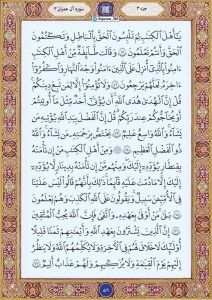 جزء ۳
سورة آل عمران ۳
يَا أَهْلَ الْكِتَابِ لِمَ تَلْبِسُونَ الْحَقَّ بِالْبَاطِلِ وَتَكْتُمُونَ
الْحَقَّ وَأَنتُمْ تَعْلَمُونَ ﴿٧١﴾ وَقَالَت طَّائِفَةٌ مِّنْ أَهْلِ الْكِتَابِ
آمِنُوا بِالَّذِي أُنزِلَ عَلَى الَّذِينَ آمَنُوا وَجْهَ النَّهَارِ وَاكْفُرُوا
آخِرَهُ لَعَلَّهُمْ يَرْجِعُونَ ﴿٧٢﴾ وَلَا تُؤْمِنُوا إِلَّا لِمَن تَبِعَ دِينَكُمْ
قُلْ إِنَّ الْهُدَىٰ هُدَى اللَّهِ أَن يُؤْتَىٰ أَحَدٌ مِّثْلَ مَا أُوتِيتُمْ
أَوْ يُحَاجُّوكُمْ عِندَ رَبِّكُمْ قُلْ إِنَّ الْفَضْلَ بِيَدِ اللَّهِ يُؤْتِيهِ مَن
يَشَاءُ وَاللَّهُ وَاسِعٌ عَلِيمٌ ﴿٧٣﴾ يَخْتَصُّ بِرَحْمَتِهِ مَن يَشَاءُ وَاللَّهُ
ذُو الْفَضْلِ الْعَظِيمِ ﴿٧٤﴾ وَمِنْ أَهْلِ الْكِتَابِ مَنْ إِن تَأْمَنْهُ
بِقِنطَارٍ يُؤَدِّهِ إِلَيْكَ وَمِنْهُم مَّنْ إِن تَأْمَنْهُ بِدِينَارٍ لَّا يُؤَدِّهِ
إِلَيْكَ إِلَّا مَا دُمْتَ عَلَيْهِ قَائِمًا ذَٰلِكَ بِأَنَّهُمْ قَالُوا لَيْسَ عَلَيْنَا
فِي الْأُمِّيِّينَ سَبِيلٌ وَيَقُولُونَ عَلَى اللَّهِ الْكَذِبَ وَهُمْ يَعْلَمُونَ
﴿٧٥﴾ بَلَىٰ مَنْ أَوْفَىٰ بِعَهْدِهِ وَاتَّقَىٰ فَإِنَّ اللَّهَ يُحِبُّ الْمُتَّقِينَ
﴿٧٦﴾ إِنَّ الَّذِينَ يَشْتَرُونَ بِعَهْدِ اللَّهِ وَأَيْمَانِهِمْ ثَمَنًا قَلِيلًا
أُولَٰئِكَ لَا خَلَاقَ لَهُمْ فِي الْآخِرَةِ وَلَا يُكَلِّمُهُمُ اللَّهُ وَلَا يَنظُرُ
إِلَيْهِمْ يَوْمَ الْقِيَامَةِ وَلَا يُزَكِّيهِمْ وَلَهُمْ عَذَابٌ أَلِيمٌ ﴿٧٧﴾
۵۹